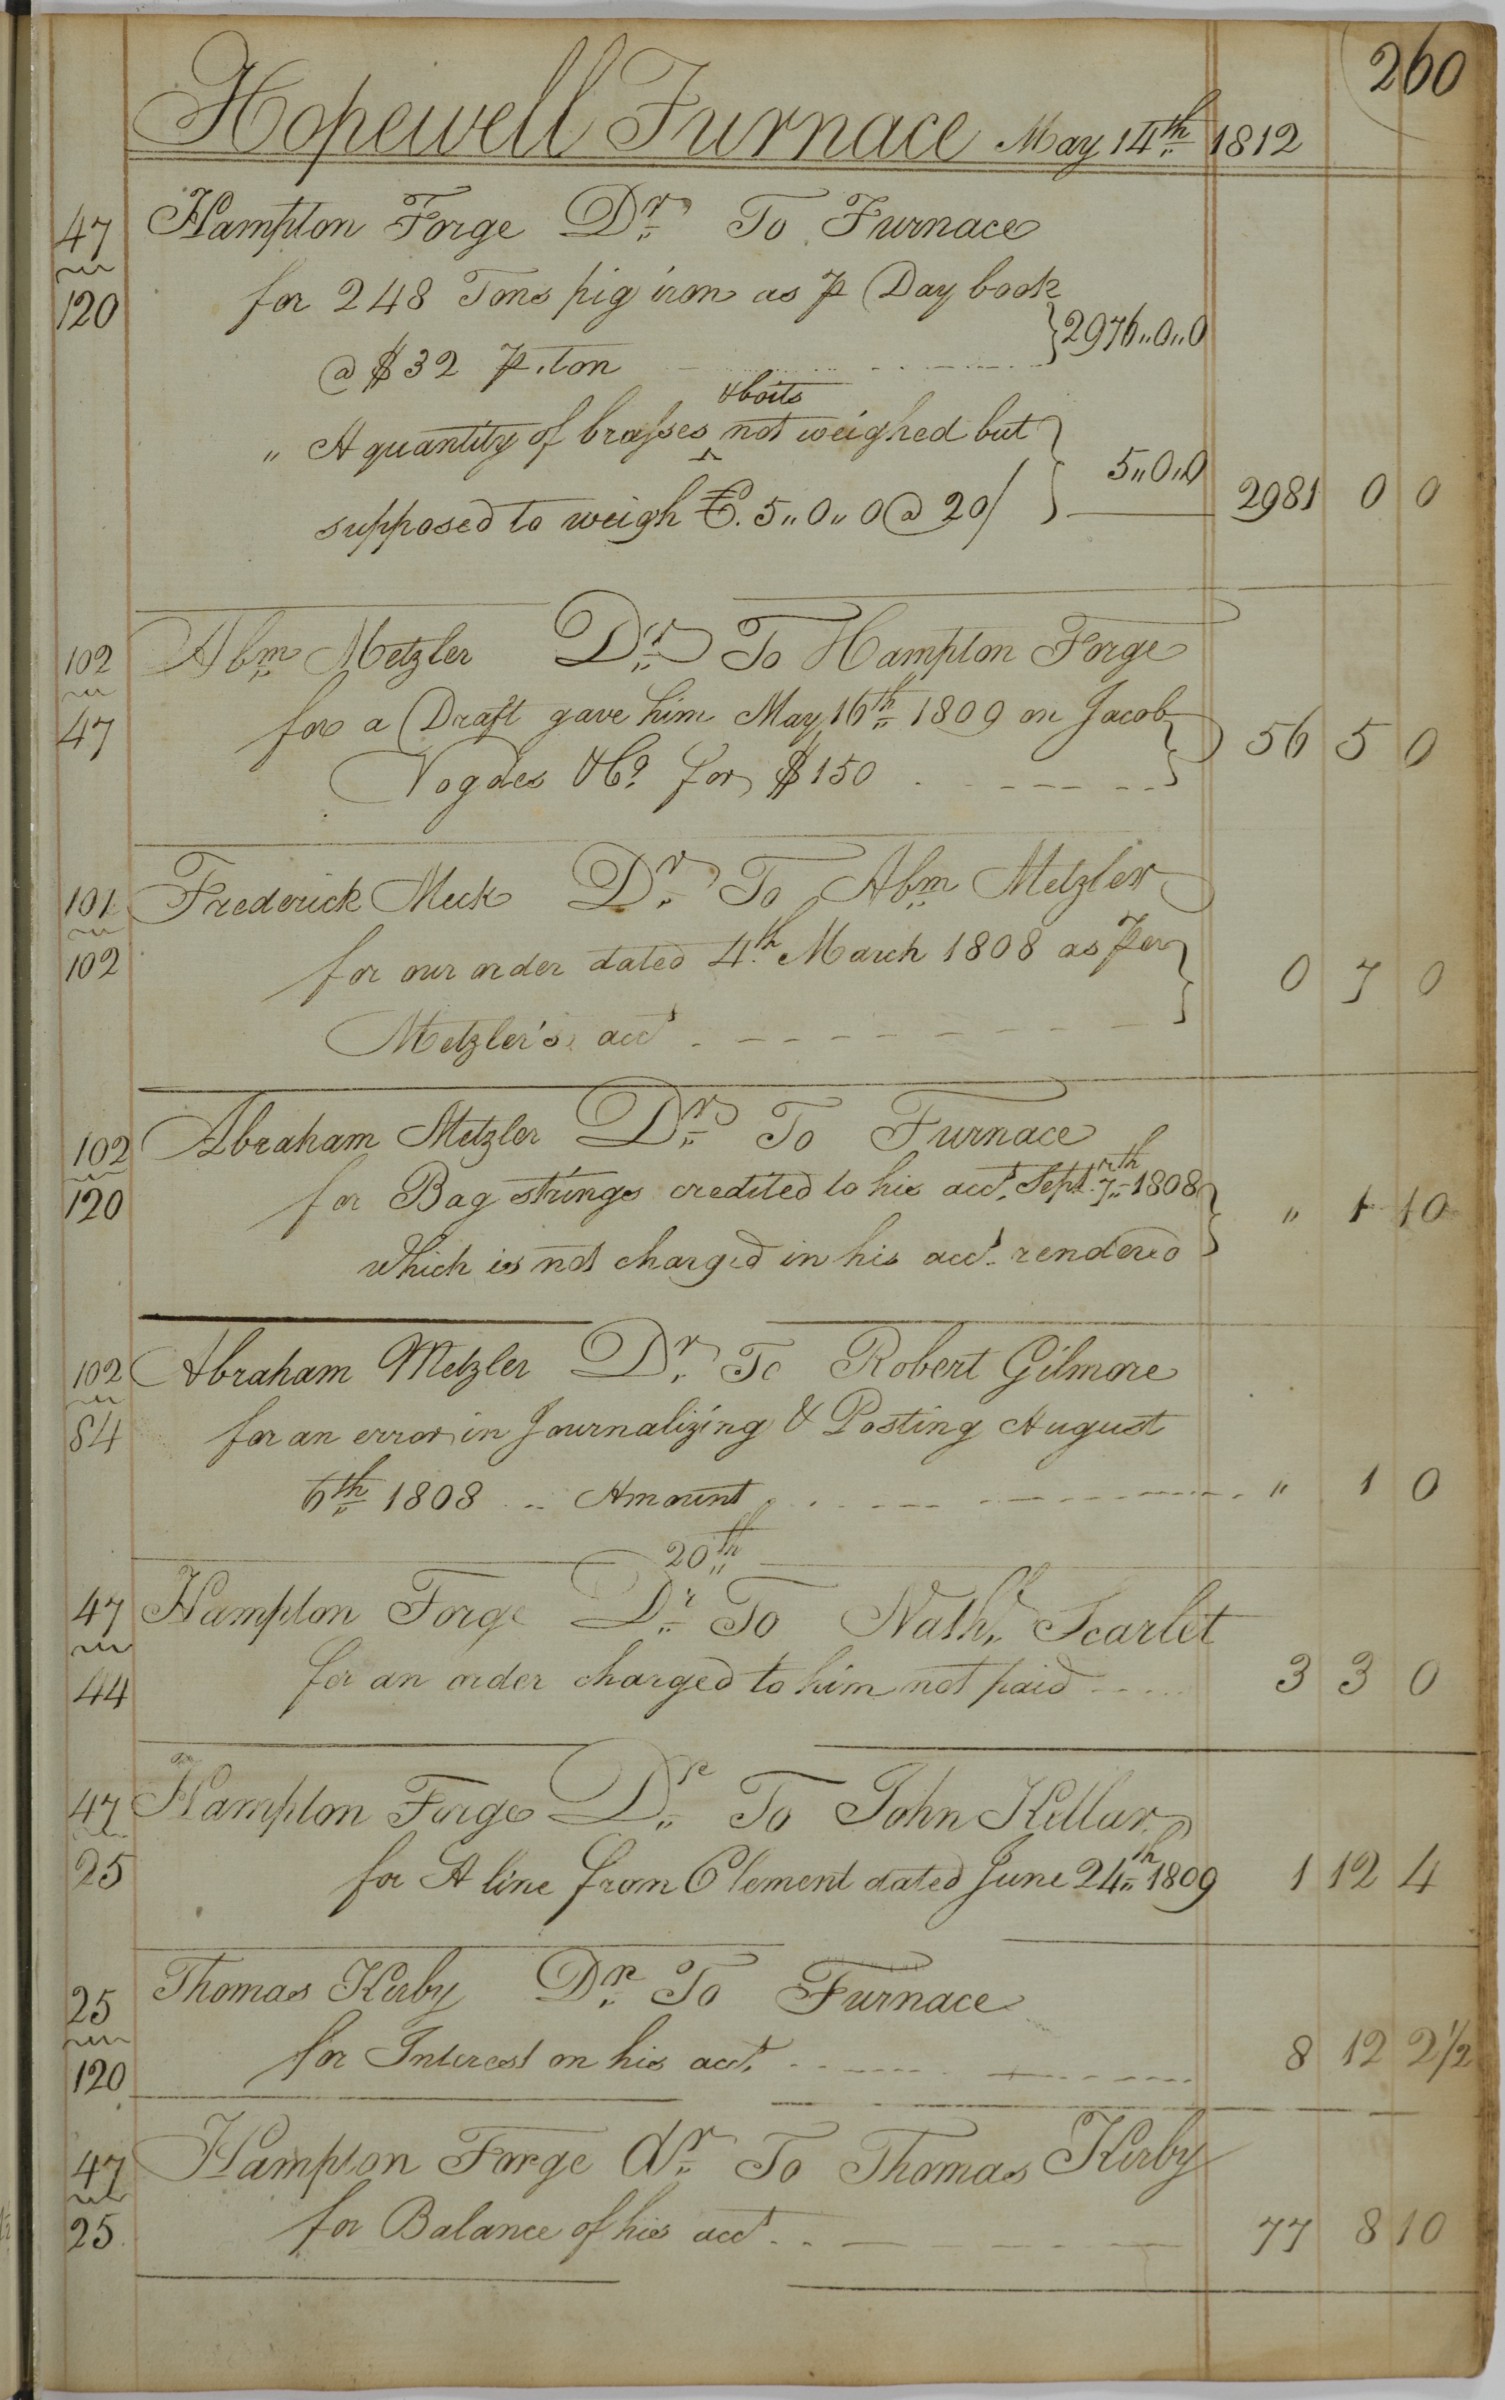 260
Hopewell Furnace May 14th 1812
47 Hampton Forge Dr To Furnace
120 for 248 Tons pig iron as ⅌ Day book
@ $32 ⅌. ton } 2976,,0,,0
& boits
,, A quantity of brasses ^ not weighed but
supposed to weigh C. 5,,0,,0 @ 20/ } 5,,0,,0 2981 0 0
102 Abm Metzler Dr To Hampton Forge
47 for a Draft gave him May 16th 1809 on Jacob
Vogdes & Co. for $150 } 56 5 0
101 Frederick Meck Dr To Abm Metzler
102 for our order dated 4th March 1808 as Per
Metzler's acct } 0 7 0
102 Abraham Metzler Dr To Furnace
120 for Bag strings credited to his acct. Sept. 7th 1808
which is not charged in his acct. rendered } ,, 1 10
102 Abraham Metzler Dr. To Robert Gilmore
84 for an error in Journalizing & Posting August
6th 1808 .. Amount ,, 1 0
20th
47 Hampton Forge Dr To Nathl. Scarlet
44 for an order charged to him not paid 3 3 0
47 Hampton Forge Dr To John Kellar
25 for A line from Clement dated June 24th 1809 1 12 4
25 Thomas Kirby Dr To Furnace
120 for Interest on his acct. 8 12 2½
47 Hampton Forge Dr To Thomas Kirby
25 for Balance of his acct 77 8 10